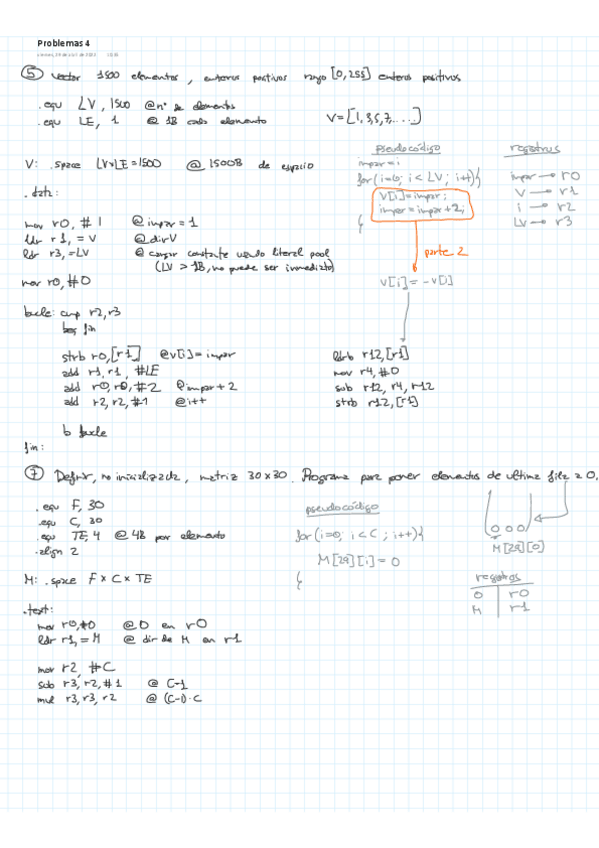 Problemas 4
⑤ Vector 1500 elementos, enteros positivos rango [0,255] enteros positivos
.equ LV, 1500 @nº de elementos
.equ LE, 1 @ 1B cada elemento
V=[1,3,5,7,...]
V: .space LV*LE=1500 @ 1500B de espacio
.data:
mov r0, #1 @impar = 1
ldr r1, = V @dirV
ldr r3, =LV @ cargar constante usando literal pool
(LV > 1B, no puede ser inmediato)
mov r0, #0
bucle: cmp r2, r3
beq fin
strb r0,[r1] @v[i]= impar
add r1, r1, #LE
add r0, r0, #2 @impar + 2
add r2, r2, #1 @i++
b bucle
fin:
pseudocódigo
impar=1
for(i=0; i < LV; i++){
V[i]=impar;
impar=impar+2;
}
parte 2
V[i]= -V[i]
ldrb r12,[r1]
mov r4, #0
sub r12, r4, r12
strb r12,[r1]
registros
impar → r0
V → r1
i → r2
LV → r3
⑦ Definir, no inicializada, matriz 30x30. Programa para poner elementos de ultima fila a 0.
.equ F, 30
.equ C, 30
.equ TE, 4 @ 4B por elemento
.align 2
M: .space F x C x TE
.text:
mov r0, #0 @ 0 en r0
ldr r1, = M @ dir de M en r1
mov r2, #C
sub r3, r2, #1 @ C-1
mul r3, r3, r2 @ (C-1)·C
pseudocódigo
for(i=0; i < C; i++){
M[29][i] = 0
}
0 0 0
M[29][0]
registros
0 r0
M r1